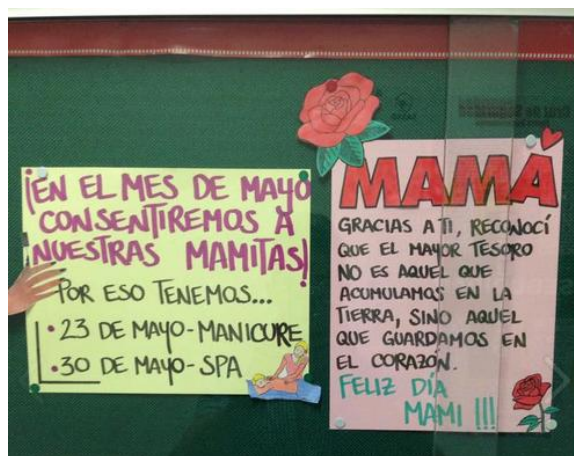 ¡EN EL MES DE MAYO
CONSENTIREMOS A
NUESTRAS MAMITAS!
POR ESO TENEMOS...
• 23 DE MAYO-MANICURE
• 30 DE MAYO-SPA
MAMÁ
GRACIAS A TI, RECONOCÍ
QUE EL MAYOR TESORO
NO ES AQUEL QUE
ACUMULAMOS EN LA
TIERRA, SINO AQUEL
QUE GUARDAMOS EN
EL CORAZÓN.
FELIZ DÍA
MAMI !!!